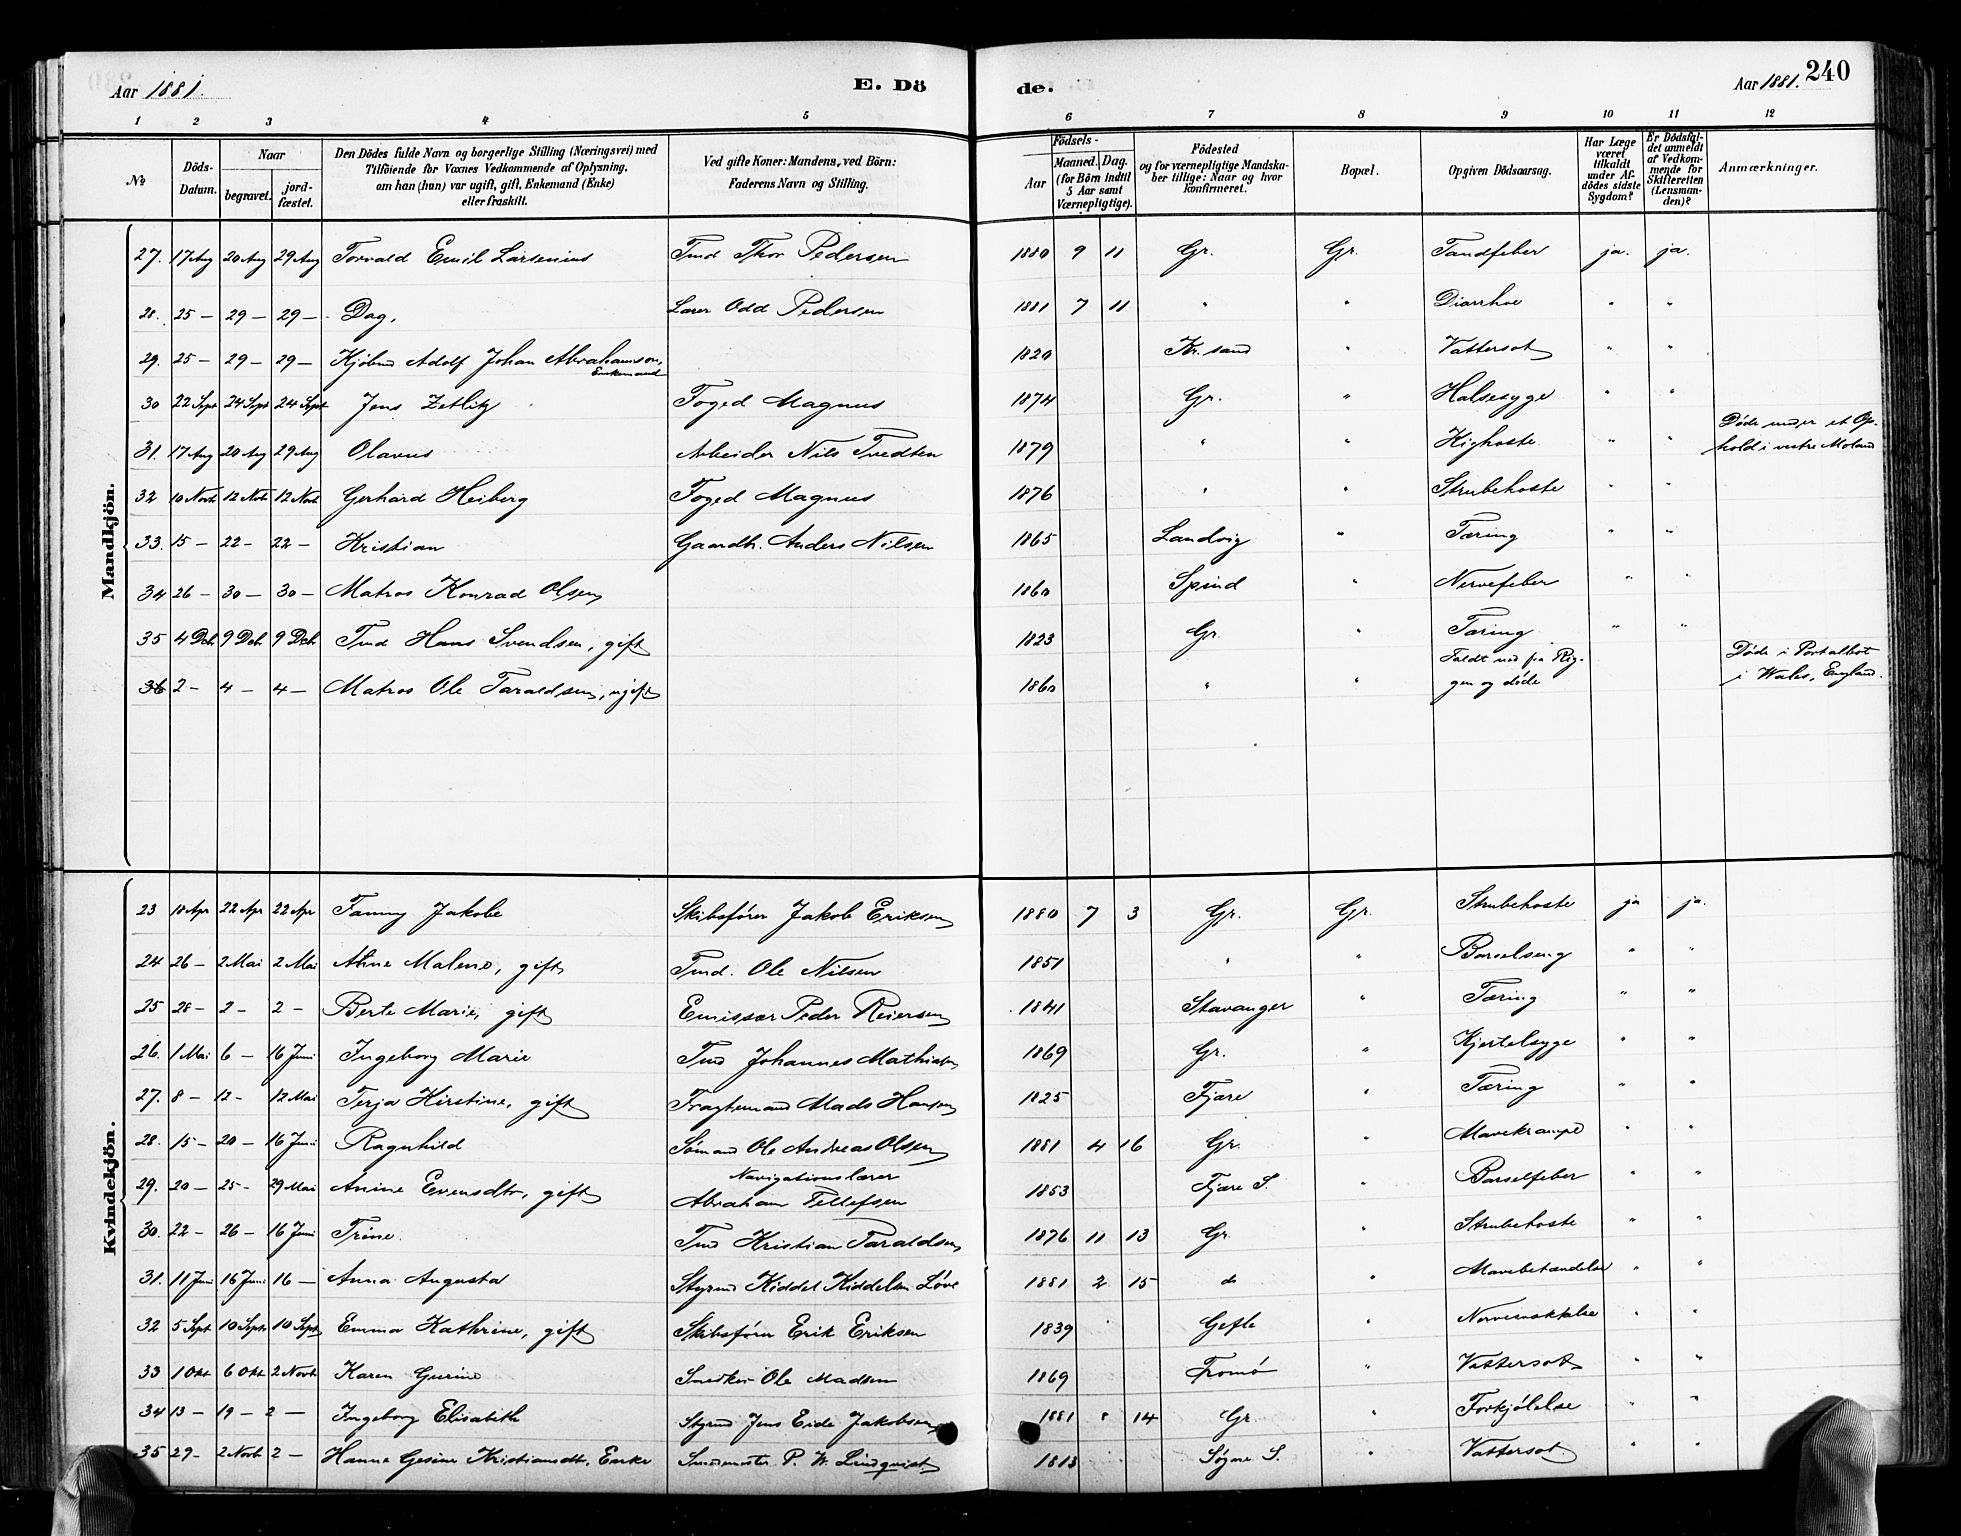 Aar 1881. E. Dö de. Aar 1881. 240
1 2 3 4 5 6 7 8 9 10 11 12
№ Döds-Datum. Naar begravet. jordfæstet. Den Dödes fulde Navn og borgerlige Stilling (Næringsvei) med Tilföiende for Voxnes Vedkommende af Oplysning, om han (hun) var ugift, gift, Enkemand (Enke) eller fraskilt. Ved gifte Koner: Mandens, ved Börn: Faderens Navn og Stilling. Födsels- Aar Maaned. Dag. (for Börn indtil 5 Aar samt Værnepligtige). Födested og for værnepligtige Mandskaber tillige: Naar og hvor konfirmeret. Bopæl. Opgiven Dödsaarsag. Har Læge været tilkaldt under Afdödes sidste Sygdom? Er Dödsfaldet anmeldt af Vedkommende for Skifteretten (Lensmanden)? Anmærkninger.
Mandkjön.
27. 17 Aug 20 Aug 29 Aug Torvald Emil Larsenius Tmd Thor Pedersen 1880 9 11 Gr. Gr. Tandfeber ja. ja.
28. 25 – 29 – 29 – Dag. Lærer Odd Pedersen 1881 7 11 " " Diarrhoe " "
29. 25 – 29 – 29 – Kjøbmd Adolf Johan Abrahamson, Enkemand 1820 Kr.sand " Vattersot " "
30 22 Sept 24 Sept 24 Sept Jens Zetlitz Foged Magnus 1874 Gr. " Halsesyge " "
31. 17 Aug 20 Aug 29 Aug Olavus Arbeider Nils Tvedten 1879 " " Kighoste " " Døde under et Ophold i vestre Moland
32 10 Novb 12 Novb 12 Novb Gerhard Heiberg Foged Magnus 1876 " " Strubehoste " "
33. 15 – 22 – 22 – Kristian Gaardb. Anders Nilsen 1865 Landvig " Tæring " "
34 26 – 30 – 30 – Matros Konrad Olsen 1860 Spind " Nervefeber " "
35 4 Dcb. 9 Dcb. 9 Dcb. Tmd Hans Svendsen, gift 1823 Gr. " Tæring " "
36 2 – 4 – 4 – Matros Ole Taraldsen, ugift 1860 " " Faldt ned fra Riggen og døde Døde i Portalbot i Wales, England.
Kvindekjön.
23 18 Apr 22 Apr 22 Apr Fanny Jakobe Skibsfører Jakob Eriksen 1880 7 3 Gr. Gr. Strubehoste ja ja.
24 26 – 2 Mai 2 Mai Aline Malene, gift Tmd. Ole Nilsen 1851 " " Barselseng " "
25 28 – 2 – 2 – Berte Marie, gift Emissær Peder Reiersen 1841 Stavanger " Tæring " "
26. 1 Mai 6 – 16 Juni Ingeborg Marie Tmd Johannes Mathisen 1869 Gr. " Kjertelsyge " "
27. 8 – 12 – 12 Mai Terja Kirstine, gift Fragtemand Mads Hansen 1825 Fjære " Tæring " "
28. 15 – 20 – 16 Juni Ragnhild Sømand Ole Andreas Olsen 1881 4 16 Gr. " Mavekrampe " "
29. 20 – 25 – 29 Mai Anine Evensdtr, gift Navigationslærer Abraham Tellefsen 1853 Fjære S. " Barselfeber " "
30. 22 – 26 – 16 Juni Trine. Tmd Kristian Taraldsen 1876 11 13 Gr. " Strubehoste " "
31. 11 Juni 16 Juni 16 – Anna Augusta Styrmd Kiddel Kiddelsen Løve 1881 2 15 do " Mavebetændelse " "
32 5 Sept 10 Sept 10 Sept Emma Kathrine, gift Skibsfører Erik Eriksen 1839 Gefle " Nervesvækkelse " "
33 1 Okt 6 Okt 2 Novb Karen Gurine Snedker Ole Madsen 1869 Tromø " Vattersot " "
34 13 – 19 – 2 – Ingeborg Elisabeth Styrmd Jens Eide Jakobsen 1881 8 14 Gr " Forkjølelse " "
35 29 – 2 Novb 2 – Hanne Gesine Kristiansdtr, Enke Smedmester P. W. Lindqvist. 1813 Søgne S. " Vattersot " "